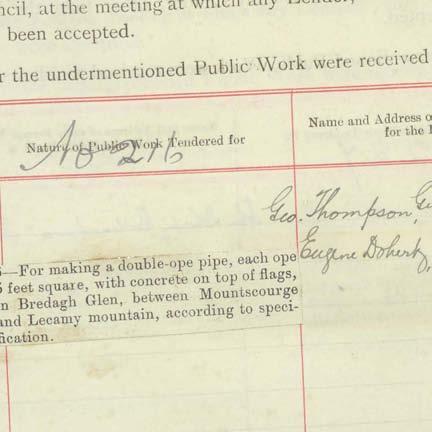 ncil, at the meeting at which any
been accepted.
r the undermentioned Public Work were received
Nature of Public Work Tendered for
Name and Address o
for the
No 216
Geo. Thompson,
Eugene Doherty,
—For making a double-ope pipe, each ope
feet square, with concrete on top of flags,
n Bredagh Glen, between Mountscourge
and Lecamy mountain, according to speci-
fication.